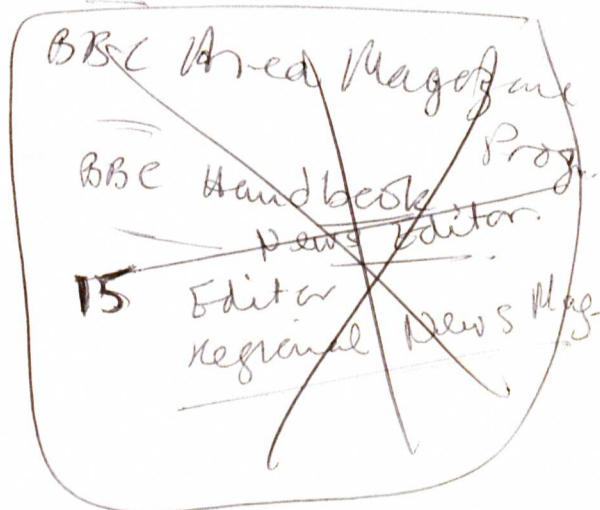 BBC Area Magazine
Prog.
BBC Handbook
News Editor.
15 Editor
Regional News Mag.